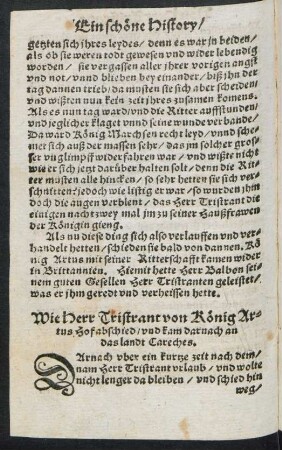 Ein schöne History/
getzten sich ihres leydes/ denn es war in beiden/
als ob sie weren todt gewesen vnd wider lebendig
worden/ sie vergassen aller jhrer vorigen angst
vnd not/ vnnd blieben bey einander/ biß jhn der
tag dannen trieb/ da musten sie sich aber scheiden/
vnd wißten nun kein zeit jhres zusamen komens.
Als es nun tag ward/ vnd die Ritter auffstunden/
vnd jeglicher klaget vnnd seine wunde verbande/
Da ward König Marchsen recht leyd/ vnnd sche-
met sich auß der massen sehr/ das jm solcher gros-
ser vnglimpff widerfahren war/ vnd wißte nicht
wie er sich jetzt darüber halten solt/ denn die Rit-
ter musten alle hincken/ so sehr hetten sie sich ver-
schnitten: jedoch wie listig er war/ so wurden jhm
doch die augen verblent/ das Herr Tristrant die
einigen nacht zwey mal jm zu seiner Haußfrawen
der Königin gieng.
Als nu diese ding sich also verlauffen vnd ver-
handelt hetten/ schieden sie bald von dannen. Kö-
nig Artus mit seiner Ritterschafft kamen wider
in Brittannien. Hiemit hette Herr Balbon sei-
nem guten Gesellen Herr Tristranten geleistet/
was er jhm geredt vnd verheissen hette.
Wie Herr Tristrant von König Ar-
tus Hof abschied/ vnd kam darnach an
das landt Careches.
Darnach vber ein kurtze zeit nach dem/
nam Herr Tristrant vrlaub/ vnd wolte
nicht lenger da bleiben/ vnd schied hin
weg/